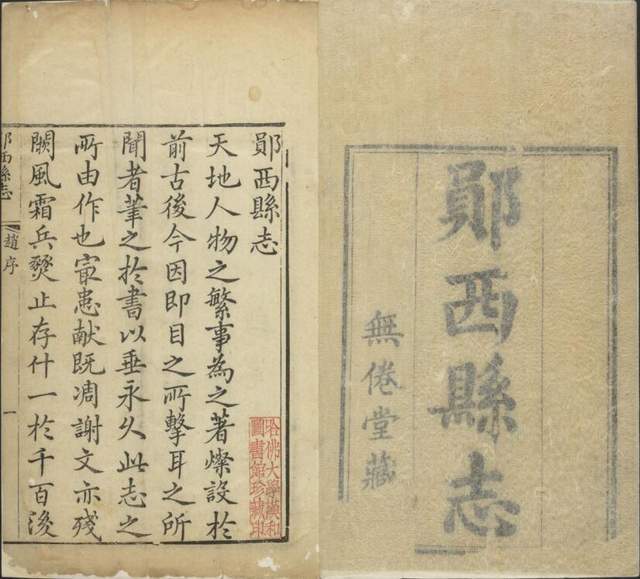 鄖西縣志
無倦堂藏
鄖西縣志
天地人物之繁事為之著燦設於
前古後今因即目之所擊耳之所
聞者筆之於書以垂永久此志之
所由作也㝡患献既凋謝文亦殘
闕風霜兵燹止存什一於千百後
哈佛大學漢和
圖書館珍藏印
鄖西縣志
趙序
一